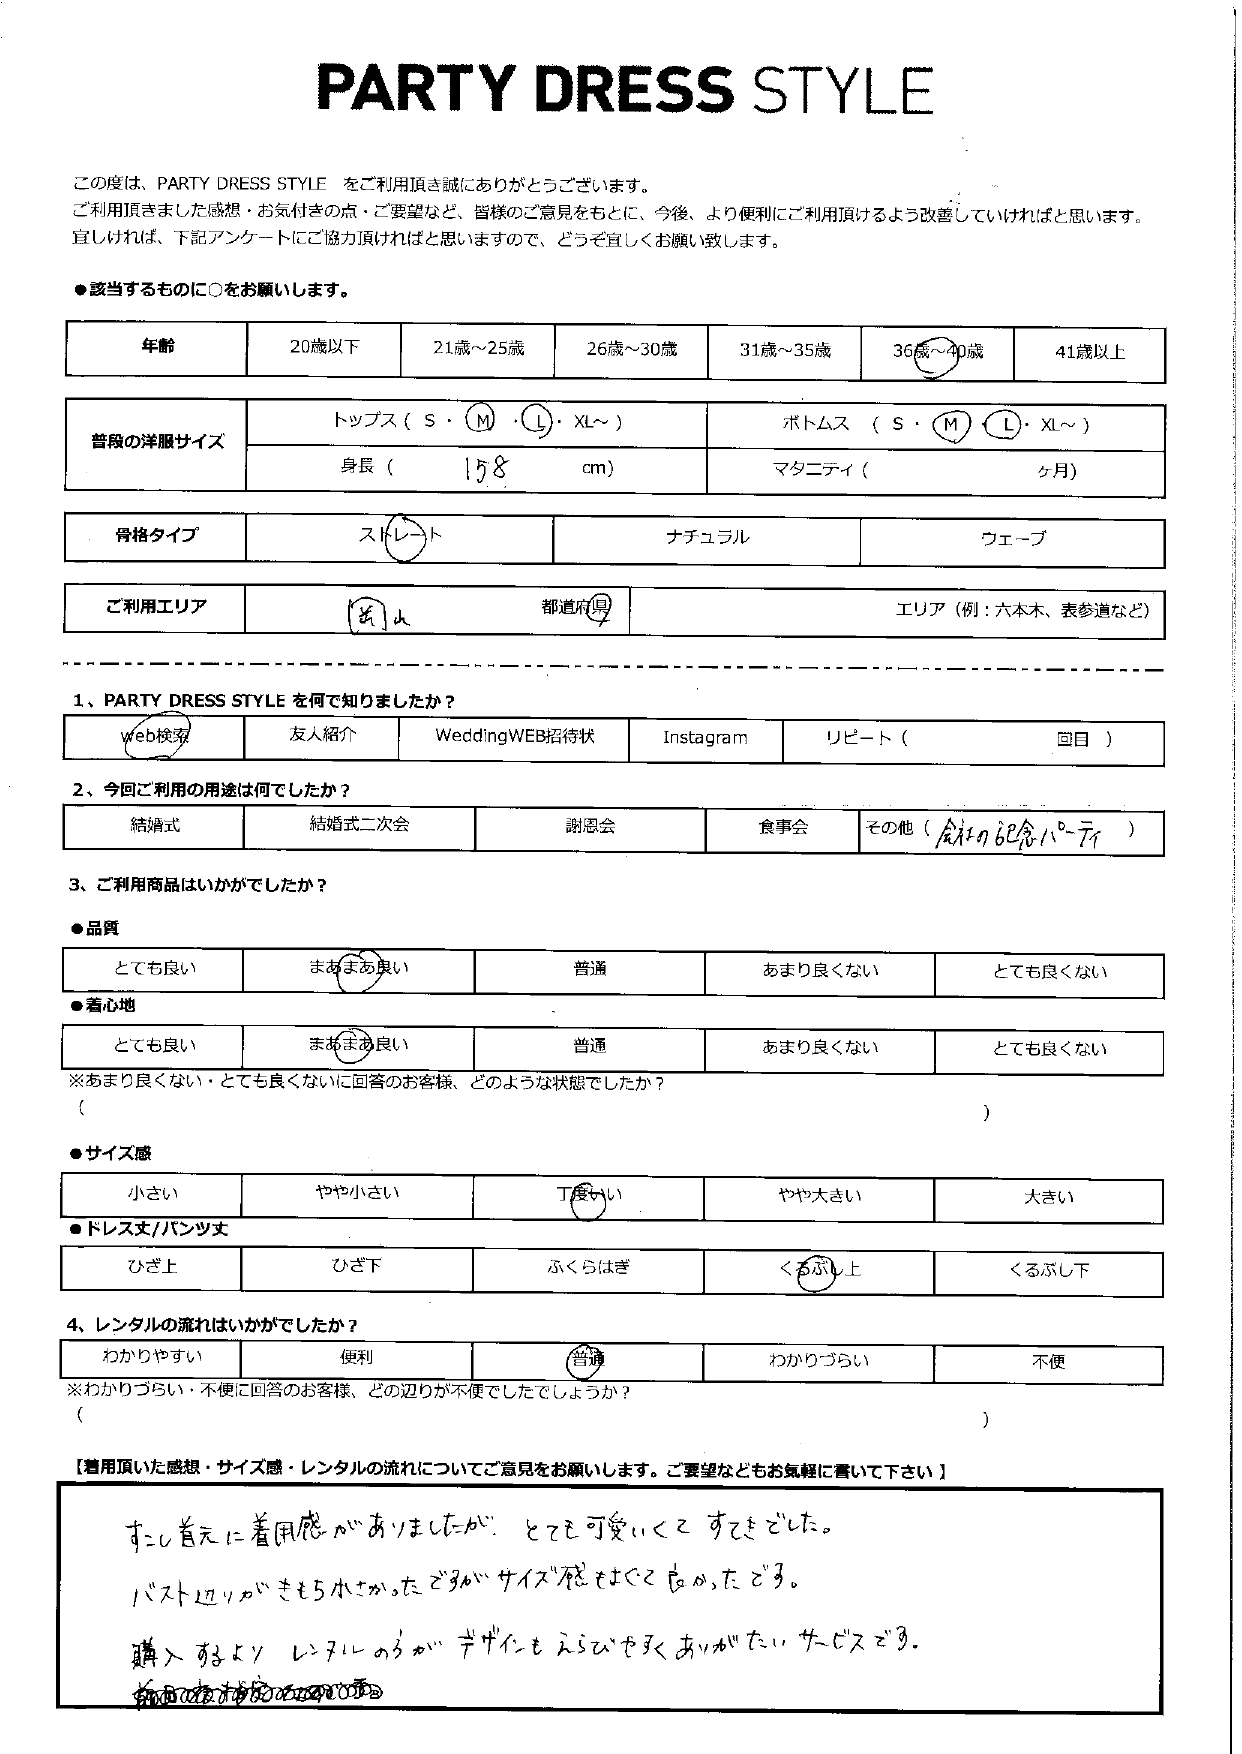 PARTY DRESS STYLE
この度は、PARTY DRESS STYLE をご利用頂き誠にありがとうございます。
ご利用頂きました感想・お気付きの点・ご要望など、皆様のご意見をもとに、今後、より便利にご利用頂けるよう改善していければと思います。
宜しければ、下記アンケートにご協力頂ければと思いますので、どうぞ宜しくお願い致します。
●該当するものに○をお願いします。
年齢 20歳以下 21歳～25歳 26歳～30歳 31歳～35歳 36歳～40歳 41歳以上
普段の洋服サイズ トップス ( S ・ M ・ L ・ XL～ ) ボトムス ( S ・ M ・ L ・ XL～ )
身長 ( 158 cm) マタニティ ( ヶ月)
骨格タイプ ストレート ナチュラル ウェーブ
ご利用エリア 岡山 都道府県 エリア（例：六本木、表参道など）
1、PARTY DRESS STYLE を何で知りましたか？
web検索 友人紹介 WeddingWEB招待状 Instagram リピート ( 回目 )
2、今回ご利用の用途は何でしたか？
結婚式 結婚式二次会 謝恩会 食事会 その他 ( 会社の記念パーティ )
3、ご利用商品はいかがでしたか？
●品質
とても良い まあまあ良い 普通 あまり良くない とても良くない
●着心地
とても良い まあまあ良い 普通 あまり良くない とても良くない
※あまり良くない・とても良くないに回答のお客様、どのような状態でしたか？
( )
●サイズ感
小さい やや小さい 丁度いい やや大きい 大きい
●ドレス丈/パンツ丈
ひざ上 ひざ下 ふくらはぎ くるぶし上 くるぶし下
4、レンタルの流れはいかがでしたか？
わかりやすい 便利 普通 わかりづらい 不便
※わかりづらい・不便に回答のお客様、どの辺りが不便でしたでしょうか？
( )
【着用頂いた感想・サイズ感・レンタルの流れについてご意見をお願いします。ご要望などもお気軽に書いて下さい】
すこし首元に着用感がありましたが、とても可愛いくて すてきでした。
バスト辺りがきもち小さかったですがサイズ感もよくて良かったです。
購入するより レンタルの方が デザインも えらびやすく ありがたい サービスです。